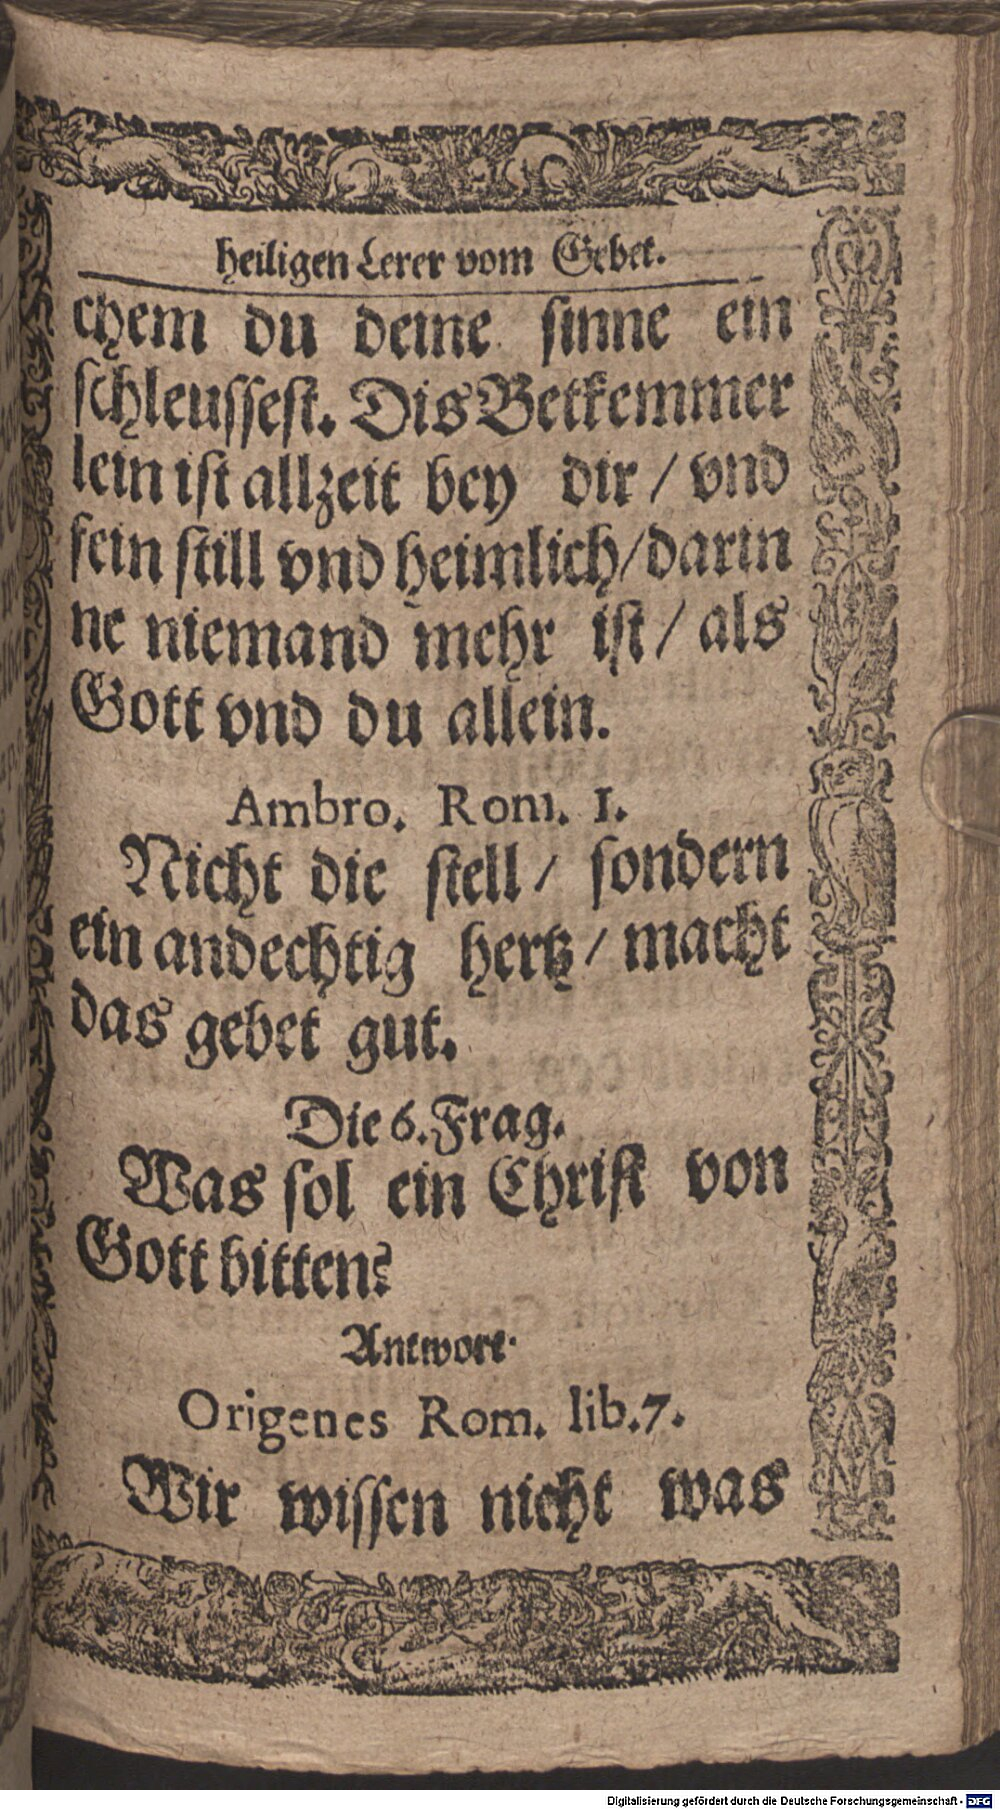 heiligen Lerer vom Gebet.
chem du deine sinne ein
schleussest. Dis Betkemmer
lein ist allzeit bey dir / vnd
fein still vnd heimlich / darin
ne niemand mehr ist / als
Gott vnd du allein.
Ambro. Rom. 1.
Nicht die stell / sondern
ein andechtig hertz / macht
das gebet gut.
Die 6. Frag.
Was sol ein Christ von
Gott bitten?
Antwort.
Origenes Rom. lib. 7.
Wir wissen nicht was
Digitalisierung gefördert durch die Deutsche Forschungsgemeinschaft - DFG